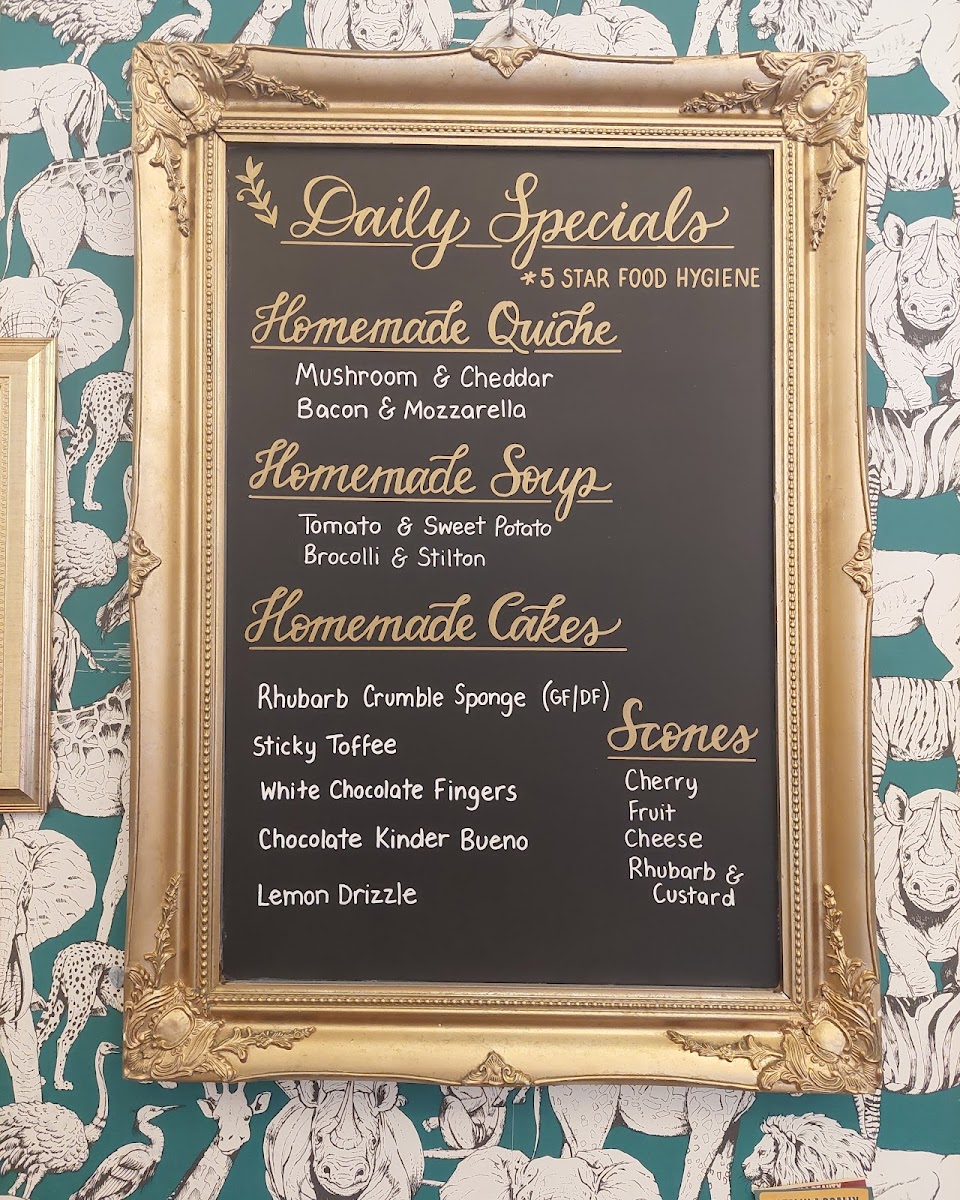 Daily Specials
*5 STAR FOOD HYGIENE
Homemade Quiche
Mushroom & Cheddar
Bacon & Mozzarella
Homemade Soup
Tomato & Sweet Potato
Brocolli & Stilton
Homemade Cakes
Rhubarb Crumble Sponge (GF/DF)
Sticky Toffee
White Chocolate Fingers
Chocolate Kinder Bueno
Lemon Drizzle
Scones
Cherry
Fruit
Cheese
Rhubarb &
Custard